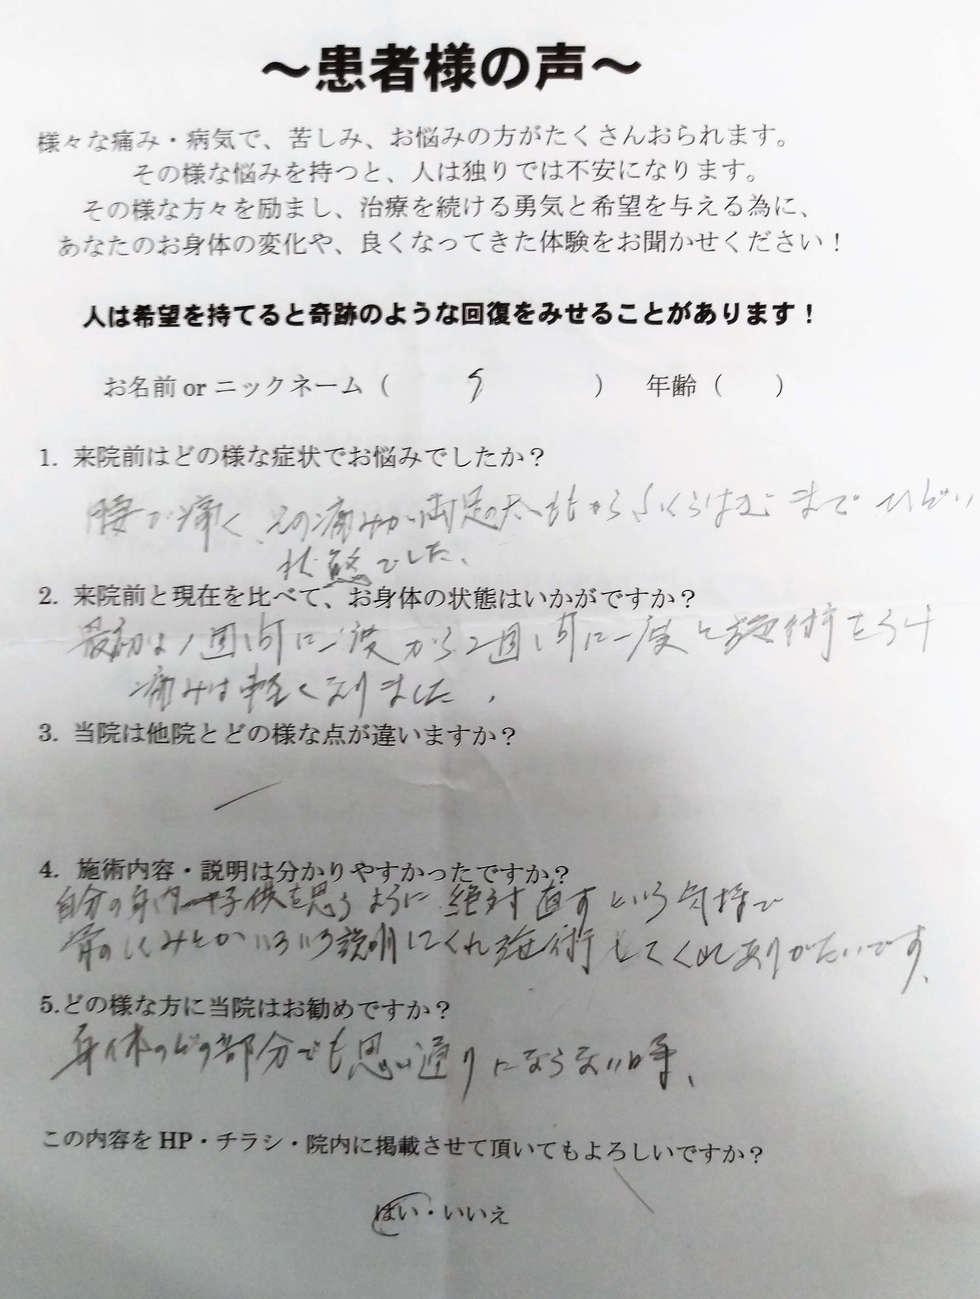 ～患者様の声～
様々な痛み・病気で、苦しみ、お悩みの方がたくさんおられます。
その様な悩みを持つと、人は独りでは不安になります。
その様な方々を励まし、治療を続ける勇気と希望を与える為に、
あなたのお身体の変化や、良くなってきた体験をお聞かせください！
人は希望を持てると奇跡のような回復をみせることがあります！
お名前 or ニックネーム（ ） 年齢（ ）
1. 来院前はどの様な症状でお悩みでしたか？
腰が痛く、その痛みが両足の太ももからふくらはぎまでひどい
状態でした、
2. 来院前と現在を比べて、お身体の状態はいかがですか？
最初は1週間に一度から2週間に一度と施術をうけ
痛みは軽くなりました、
3. 当院は他院とどの様な点が違いますか？
4. 施術内容・説明は分かりやすかったですか？
自分の身内や子供を思うように絶対直すという気持で
骨のしくみとかいろいろ説明してくれ施術してくれありがたいです、
5.どの様な方に当院はお勧めですか？
身体のどの部分でも思い通りにならない時、
この内容を HP・チラシ・院内に掲載させて頂いてもよろしいですか？
はい・いいえ